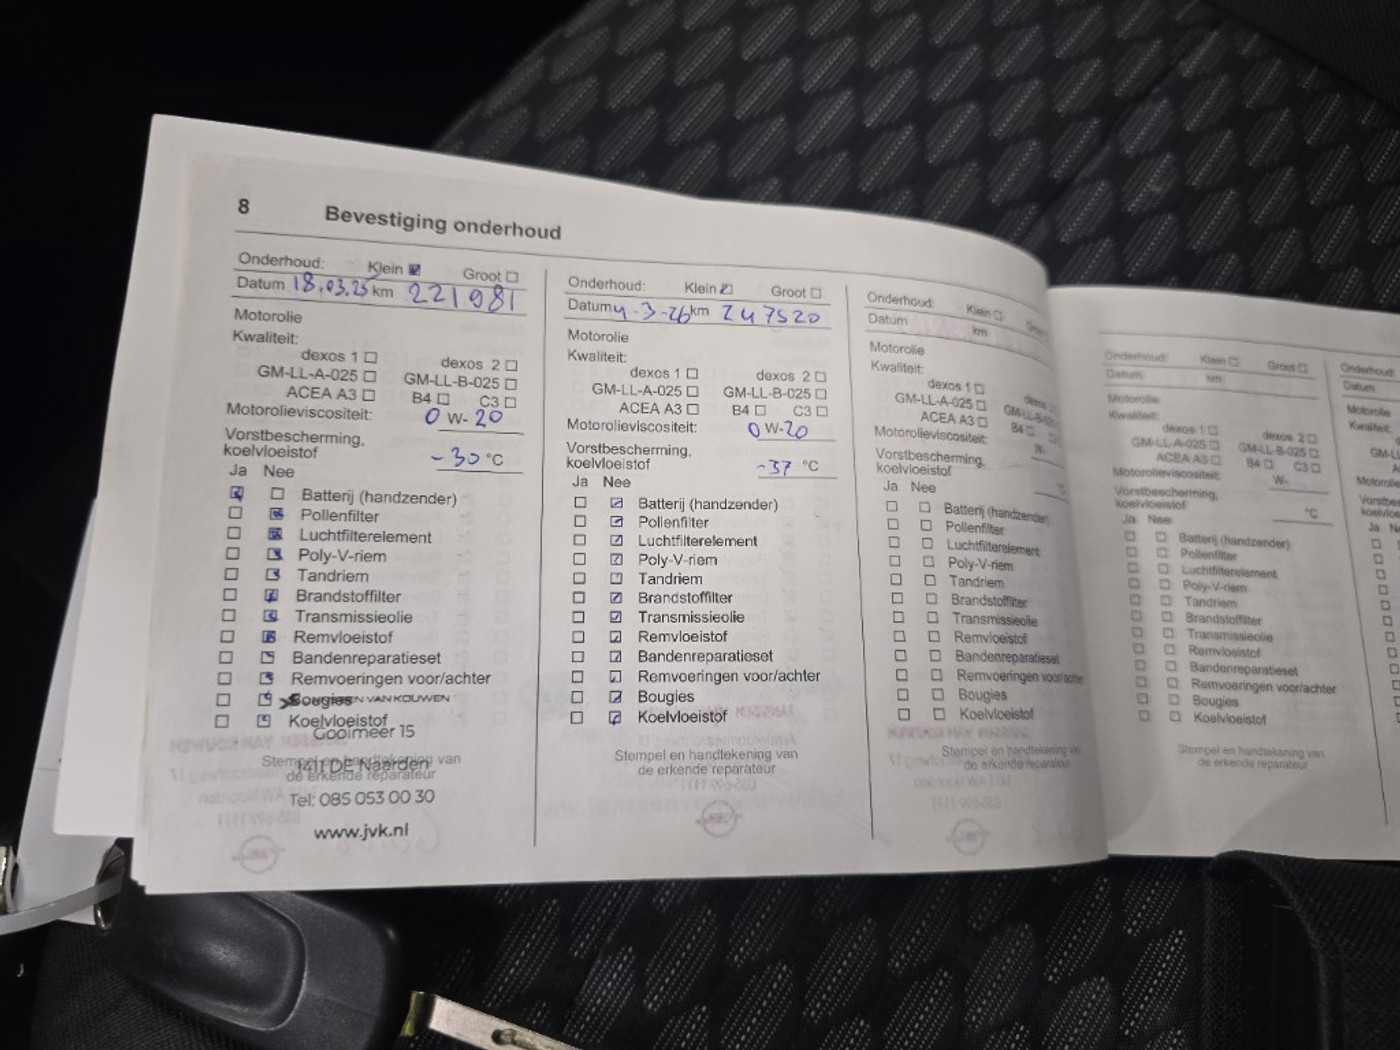 8 Bevestiging onderhoud
Onderhoud: Klein Groot
Datum 18.03.25 km 221981
Motorolie
Kwaliteit:
dexos 1 dexos 2
GM-LL-A-025 GM-LL-B-025
ACEA A3 B4 C3
Motorolieviscositeit: 0 W- 20
Vorstbescherming,
koelvloeistof -30 °C
Ja Nee
Batterij (handzender)
Pollenfilter
Luchtfilterelement
Poly-V-riem
Tandriem
Brandstoffilter
Transmissieolie
Remvloeistof
Bandenreparatieset
Remvoeringen voor/achter
Bougies VAN KOUWEN
Koelvloeistof
Gooimeer 15
Stempel en handtekening van
1411 DE Naarden
de erkende reparateur
Tel: 085 053 00 30
www.jvk.nl
Onderhoud: Klein Groot
Datum 4-3-26 km 247520
Motorolie
Kwaliteit:
dexos 1 dexos 2
GM-LL-A-025 GM-LL-B-025
ACEA A3 B4 C3
Motorolieviscositeit: 0 W-20
Vorstbescherming,
koelvloeistof -37 °C
Ja Nee
Batterij (handzender)
Pollenfilter
Luchtfilterelement
Poly-V-riem
Tandriem
Brandstoffilter
Transmissieolie
Remvloeistof
Bandenreparatieset
Remvoeringen voor/achter
Bougies
Koelvloeistof
Stempel en handtekening van
de erkende reparateur
Onderhoud: Klein
Datum km
Motorolie
Kwaliteit:
dexos 1
GM-LL-A-025 GM-LL-B-025
ACEA A3 B4
Motorolieviscositeit: W-
Vorstbescherming,
koelvloeistof
Ja Nee
Batterij (handzender)
Pollenfilter
Luchtfilterelement
Poly-V-riem
Tandriem
Brandstoffilter
Transmissieolie
Remvloeistof
Bandenreparatieset
Remvoeringen voor/achter
Bougies
Koelvloeistof
Stempel en handtekening van
de erkende reparateur
Onderhoud: Klein Groot
Datum km
Motorolie
Kwaliteit:
dexos 1 dexos 2
GM-LL-A-025 GM-LL-B-025
ACEA A3 B4 C3
Motorolieviscositeit: W-
Vorstbescherming,
koelvloeistof °C
Ja Nee
Batterij (handzender)
Pollenfilter
Luchtfilterelement
Poly-V-riem
Tandriem
Brandstoffilter
Transmissieolie
Remvloeistof
Bandenreparatieset
Remvoeringen voor/achter
Bougies
Koelvloeistof
Stempel en handtekening van
de erkende reparateur
Onderhoud:
Datum
Motorolie
Kwaliteit: